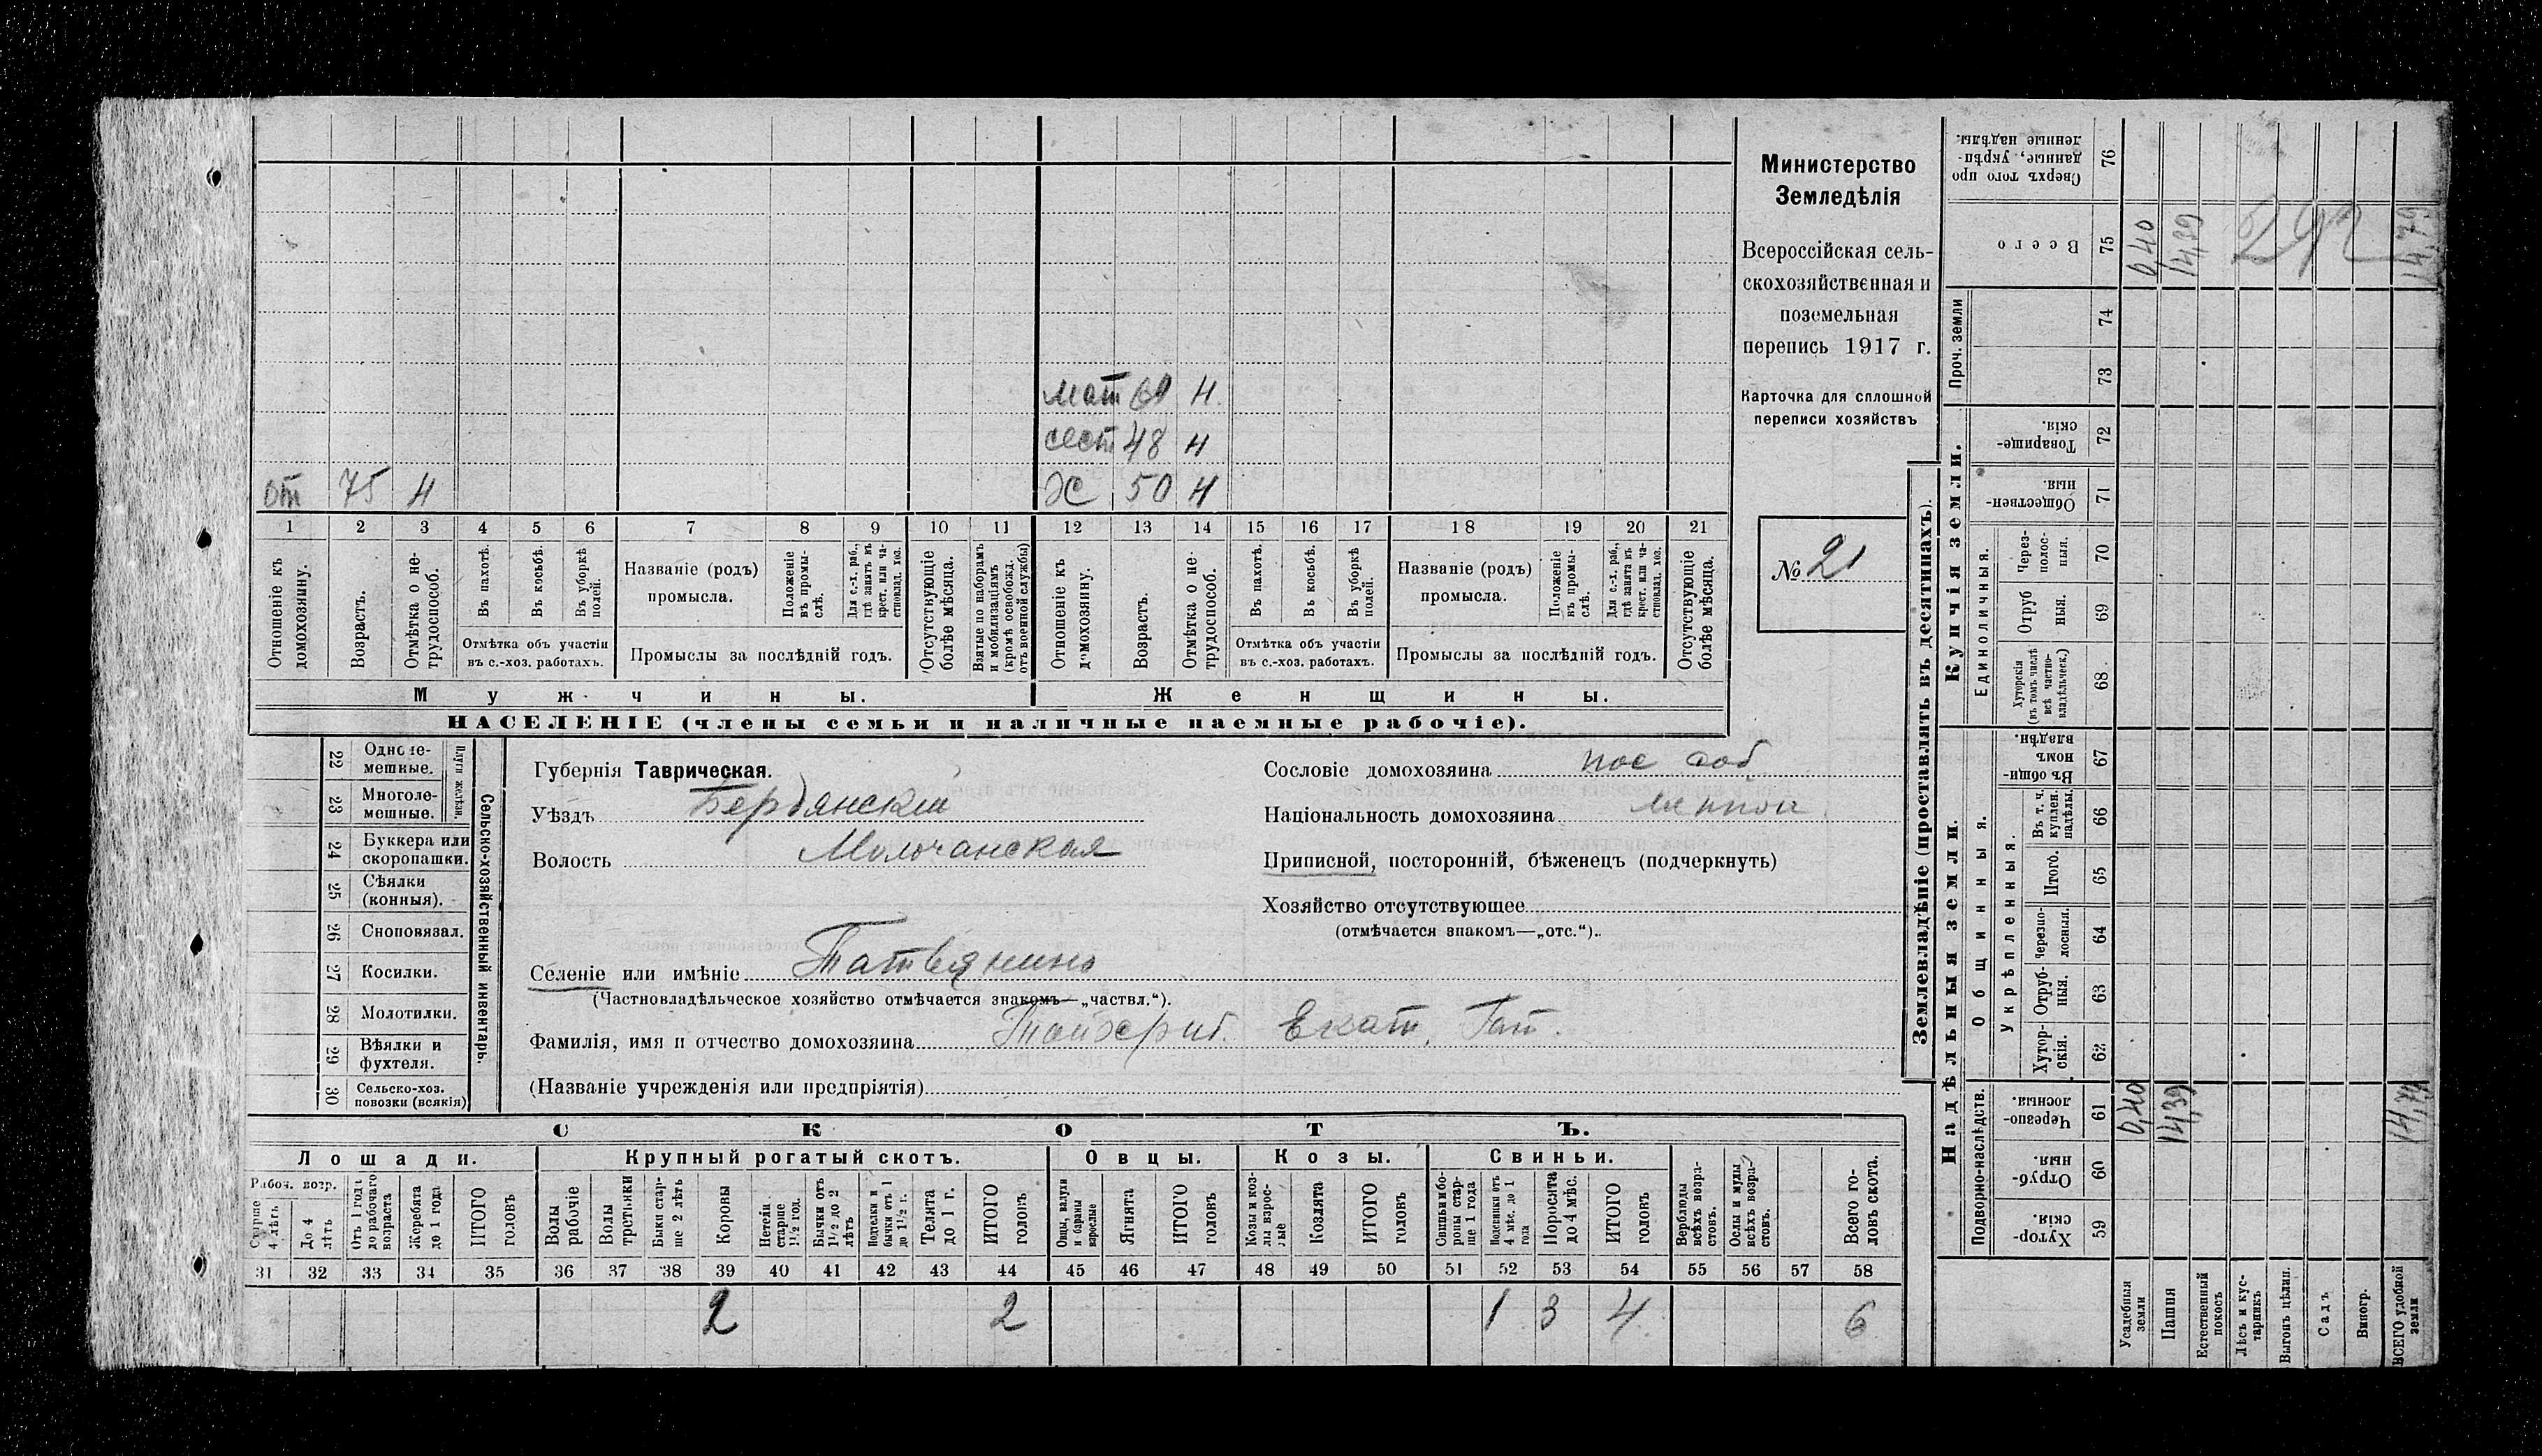 Министерство
Земледѣлія
Всероссійская сель-
скохозяйственная и
поземельная
перепись 1917 г.
Карточка для сплошной
переписи хозяйствъ
№ 21
мат 61 н
сест 48 н
от 75 н
Ж 50 н
1 2 3 4 5 6 7 8 9 10 11 12 13 14 15 16 17 18 19 20 21
Отношеніе къ домохозяину.
Возрастъ.
Отмѣтка о не-трудоспособ.
Въ пахотѣ.
Въ косьбѣ.
Въ уборкѣ полей.
Отмѣтка объ участіи
въ с.-хоз. работахъ.
Названіе (родъ)
промысла.
Положеніе въ промы-слѣ.
Для с.-х. раб., гдѣ занятъ въ крест. или ча-стновлад. хоз.
Промыслы за послѣдній годъ.
Отсутствующіе болѣе мѣсяца.
Взятые по наборамъ и мобилизаціямъ (кромѣ освобожд. отъ военной службы)
Отношеніе къ домохозяину.
Возрастъ.
Отмѣтка о не-трудоспособ.
Въ пахотѣ.
Въ косьбѣ.
Въ уборкѣ полей.
Отмѣтка объ участіи
въ с.-хоз. работахъ.
Названіе (родъ)
промысла.
Положеніе въ промы-слѣ.
Для с.-х. раб., гдѣ занята въ крест. или ча-стновлад. хоз.
Промыслы за послѣдній годъ.
Отсутствующіе болѣе мѣсяца.
Мужчины.
Женщины.
НАСЕЛЕНІЕ (члены семьи и наличные наемные рабочіе).
22 Одноле-мешные.
23 Многоле-мешные.
Плуги желѣзн.
24 Буккера или скоропашки.
25 Сѣялки (конныя).
26 Сноповязал.
27 Косилки.
28 Молотилки.
29 Вѣялки и фухтеля.
30 Сельско-хоз. повозки (всякія)
Сельско-хозяйственный инвентарь.
Губернія Таврическая.
Уѣздъ Бердянский
Волость Молочанская
Селеніе или имѣніе Татьянино
(Частновладѣльческое хозяйство отмѣчается знакомъ—„частвл.“).
Фамилія, имя и отчество домохозяина Екат.
(Названіе учрежденія или предпріятія)
Сословіе домохозяина пос соб
Національность домохозяина меннон
Приписной, посторонній, бѣженецъ (подчеркнуть)
Хозяйство отсутствующее
(отмѣчается знакомъ—„отс.“).
СКОТЪ.
Лошади.
Крупный рогатый скотъ.
Овцы.
Козы.
Свиньи.
Рабоч. возр.
Старше 4 лѣтъ
До 4 лѣтъ
Отъ 1 года до рабочаго возраста
Жеребята до 1 года
ИТОГО головъ
Волы рабочіе
Волы третьяки
Быки стар-ше 2 лѣтъ
Коровы
Нетели старше 1½ год.
Бычки отъ 1½ до 2 лѣтъ
Подтелки и бычки отъ 1 до 1½ г.
Телята до 1 г.
ИТОГО головъ
Овцы, валухи и бараны взрослые
Ягнята
ИТОГО головъ
Козы и коз-лы взрос-лые
Козлята
ИТОГО головъ
Свиньи и бо-ровы стар-ше 1 года
Подсвинки отъ 4 мѣс. до 1 года
Поросята до 4 мѣс.
ИТОГО головъ
Верблюды всѣхъ возра-стовъ.
Ослы и мулы всѣхъ возра-стовъ.
Всего го-ловъ скота.
31 32 33 34 35 36 37 38 39 40 41 42 43 44 45 46 47 48 49 50 51 52 53 54 55 56 57 58
2 2 1 3 4 6
Землевладѣніе (проставлять въ десятинахъ).
Купчія земли.
Надѣльныя земли.
Сверхъ того про-данные, укрѣп-ленные надѣлы. 76
Всего 75 0,40 14,39 14,79
Проч. земли
74
73
Товарище-скія. 72
Обществен-ныя. 71
Единоличныя.
Через-полос-ныя. 70
Отруб-ныя. 69
Хуторскія (въ томъ числѣ всѣ частно-владѣльческ.) 68
Общинныя.
Въ общин-номъ владѣн. 67
Укрѣпленныя.
Въ т. ч. куплен. надѣлы. 66
Итого. 65
Черезпо-лосныя. 64
Отруб-ныя. 63
Хутор-скія. 62
Подворно-наслѣдств.
Черезпо-лосныя. 61 0,40 14,39 14,79
Отруб-ныя. 60
Хутор-скія. 59
Усадебныя земли
Пашня
Естественный покосъ
Лѣсъ и кус-тарникъ
Выгонъ цѣлин.
Садъ
Виногр.
ВСЕГО удобной земли